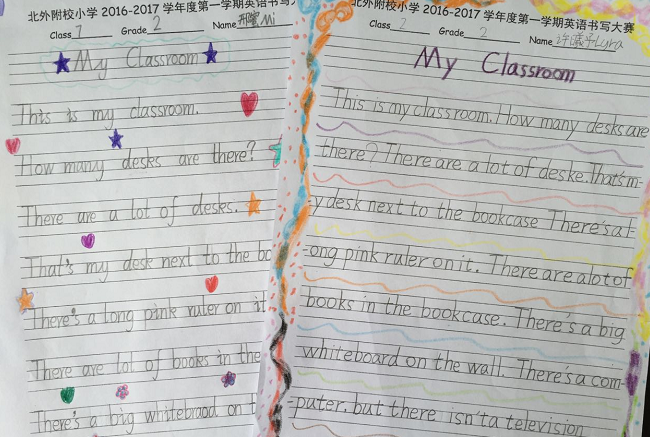 北外附校小学 2016-2017 学年度第一学期英语书写大
Class 7 Grade 2 Name Mi
My Classroom
This is my classroom.
How many desks are there?
There are a lot of desks.
That's my desk next to the bo
There's a long pink ruler on it
There are lot of books in the
There's a big whitebraod on t
北外附校小学 2016-2017 学年度第一学期英语书写大赛
Class 2 Grade 2 Name 许 Lyra
My Classroom
This is my classroom. How many desks are
there? There are a lot of deske. That's m-
-y desk next to the bookcase There's a l-
-ong pink ruler on it. There are alot of
books in the bookcase. There's a big
whiteboard on the wall. There's a com-
-puter. but there isn'ta television